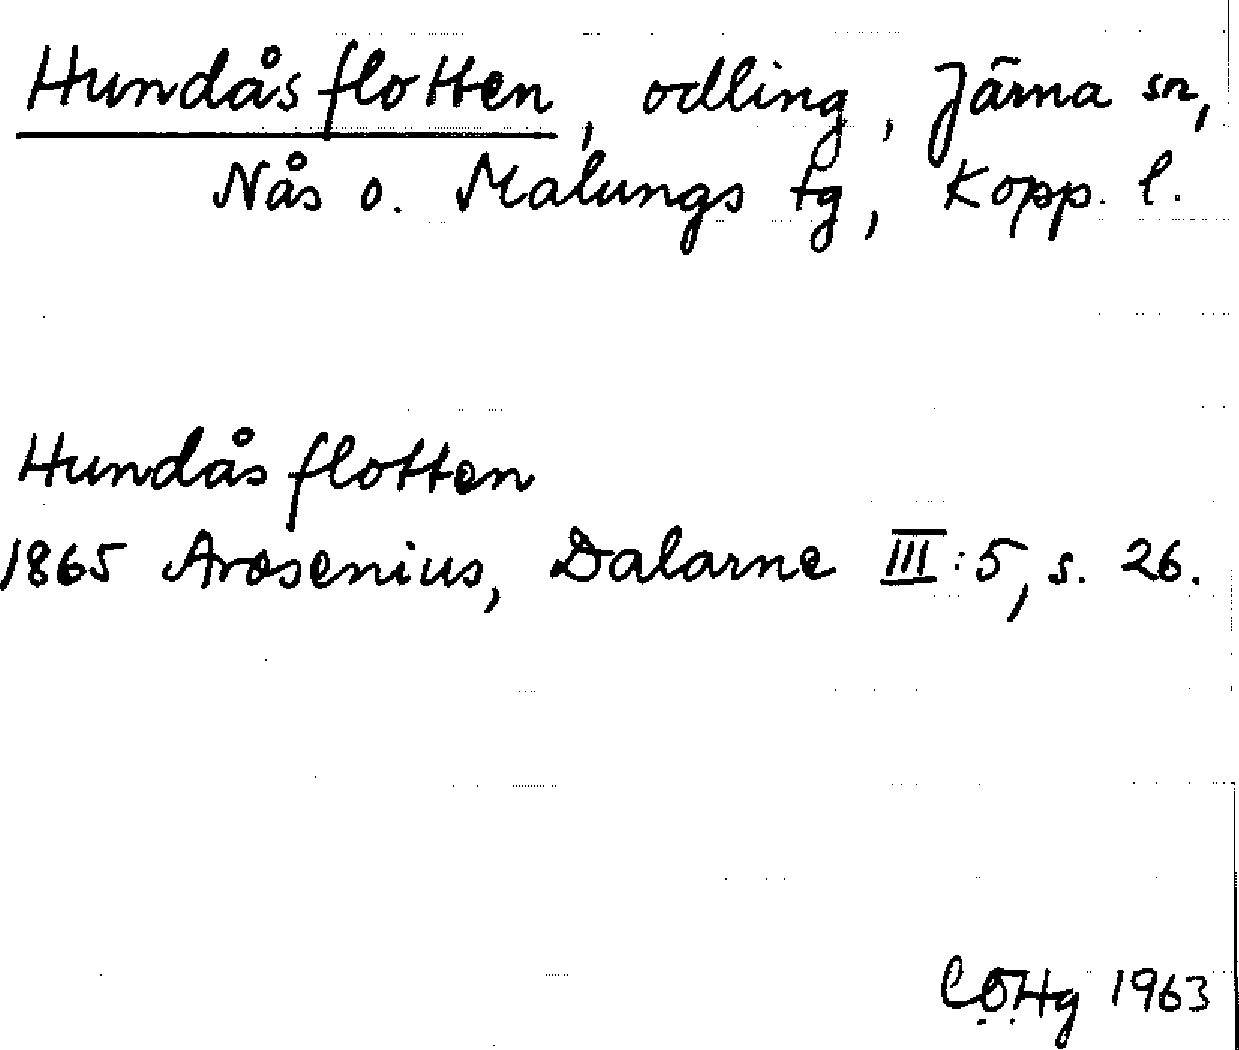 Hundåsflotten, odling, Järna sn,
Nås o. Malungs tg, Kopp. l.
Hundåsflotten
1865 Arosenius, Dalarne III:5, s. 26.
1963